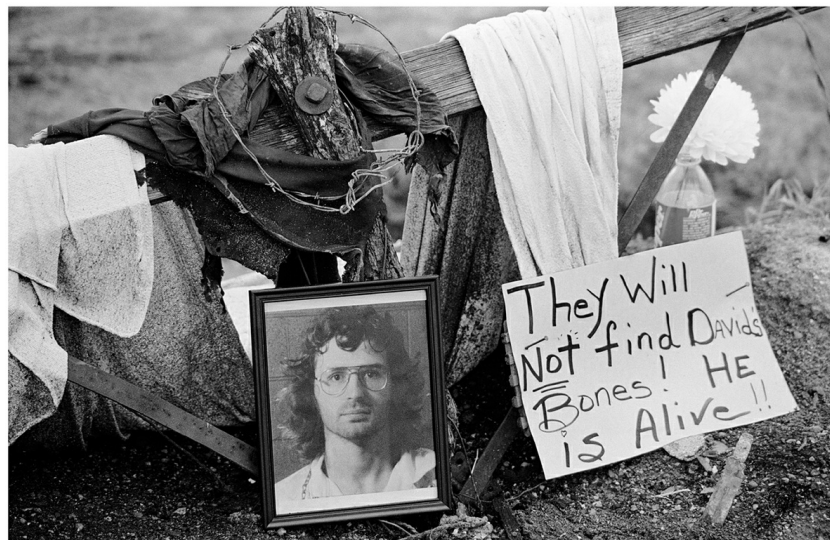 They Will
Not find David's
Bones! HE
is Alive!!